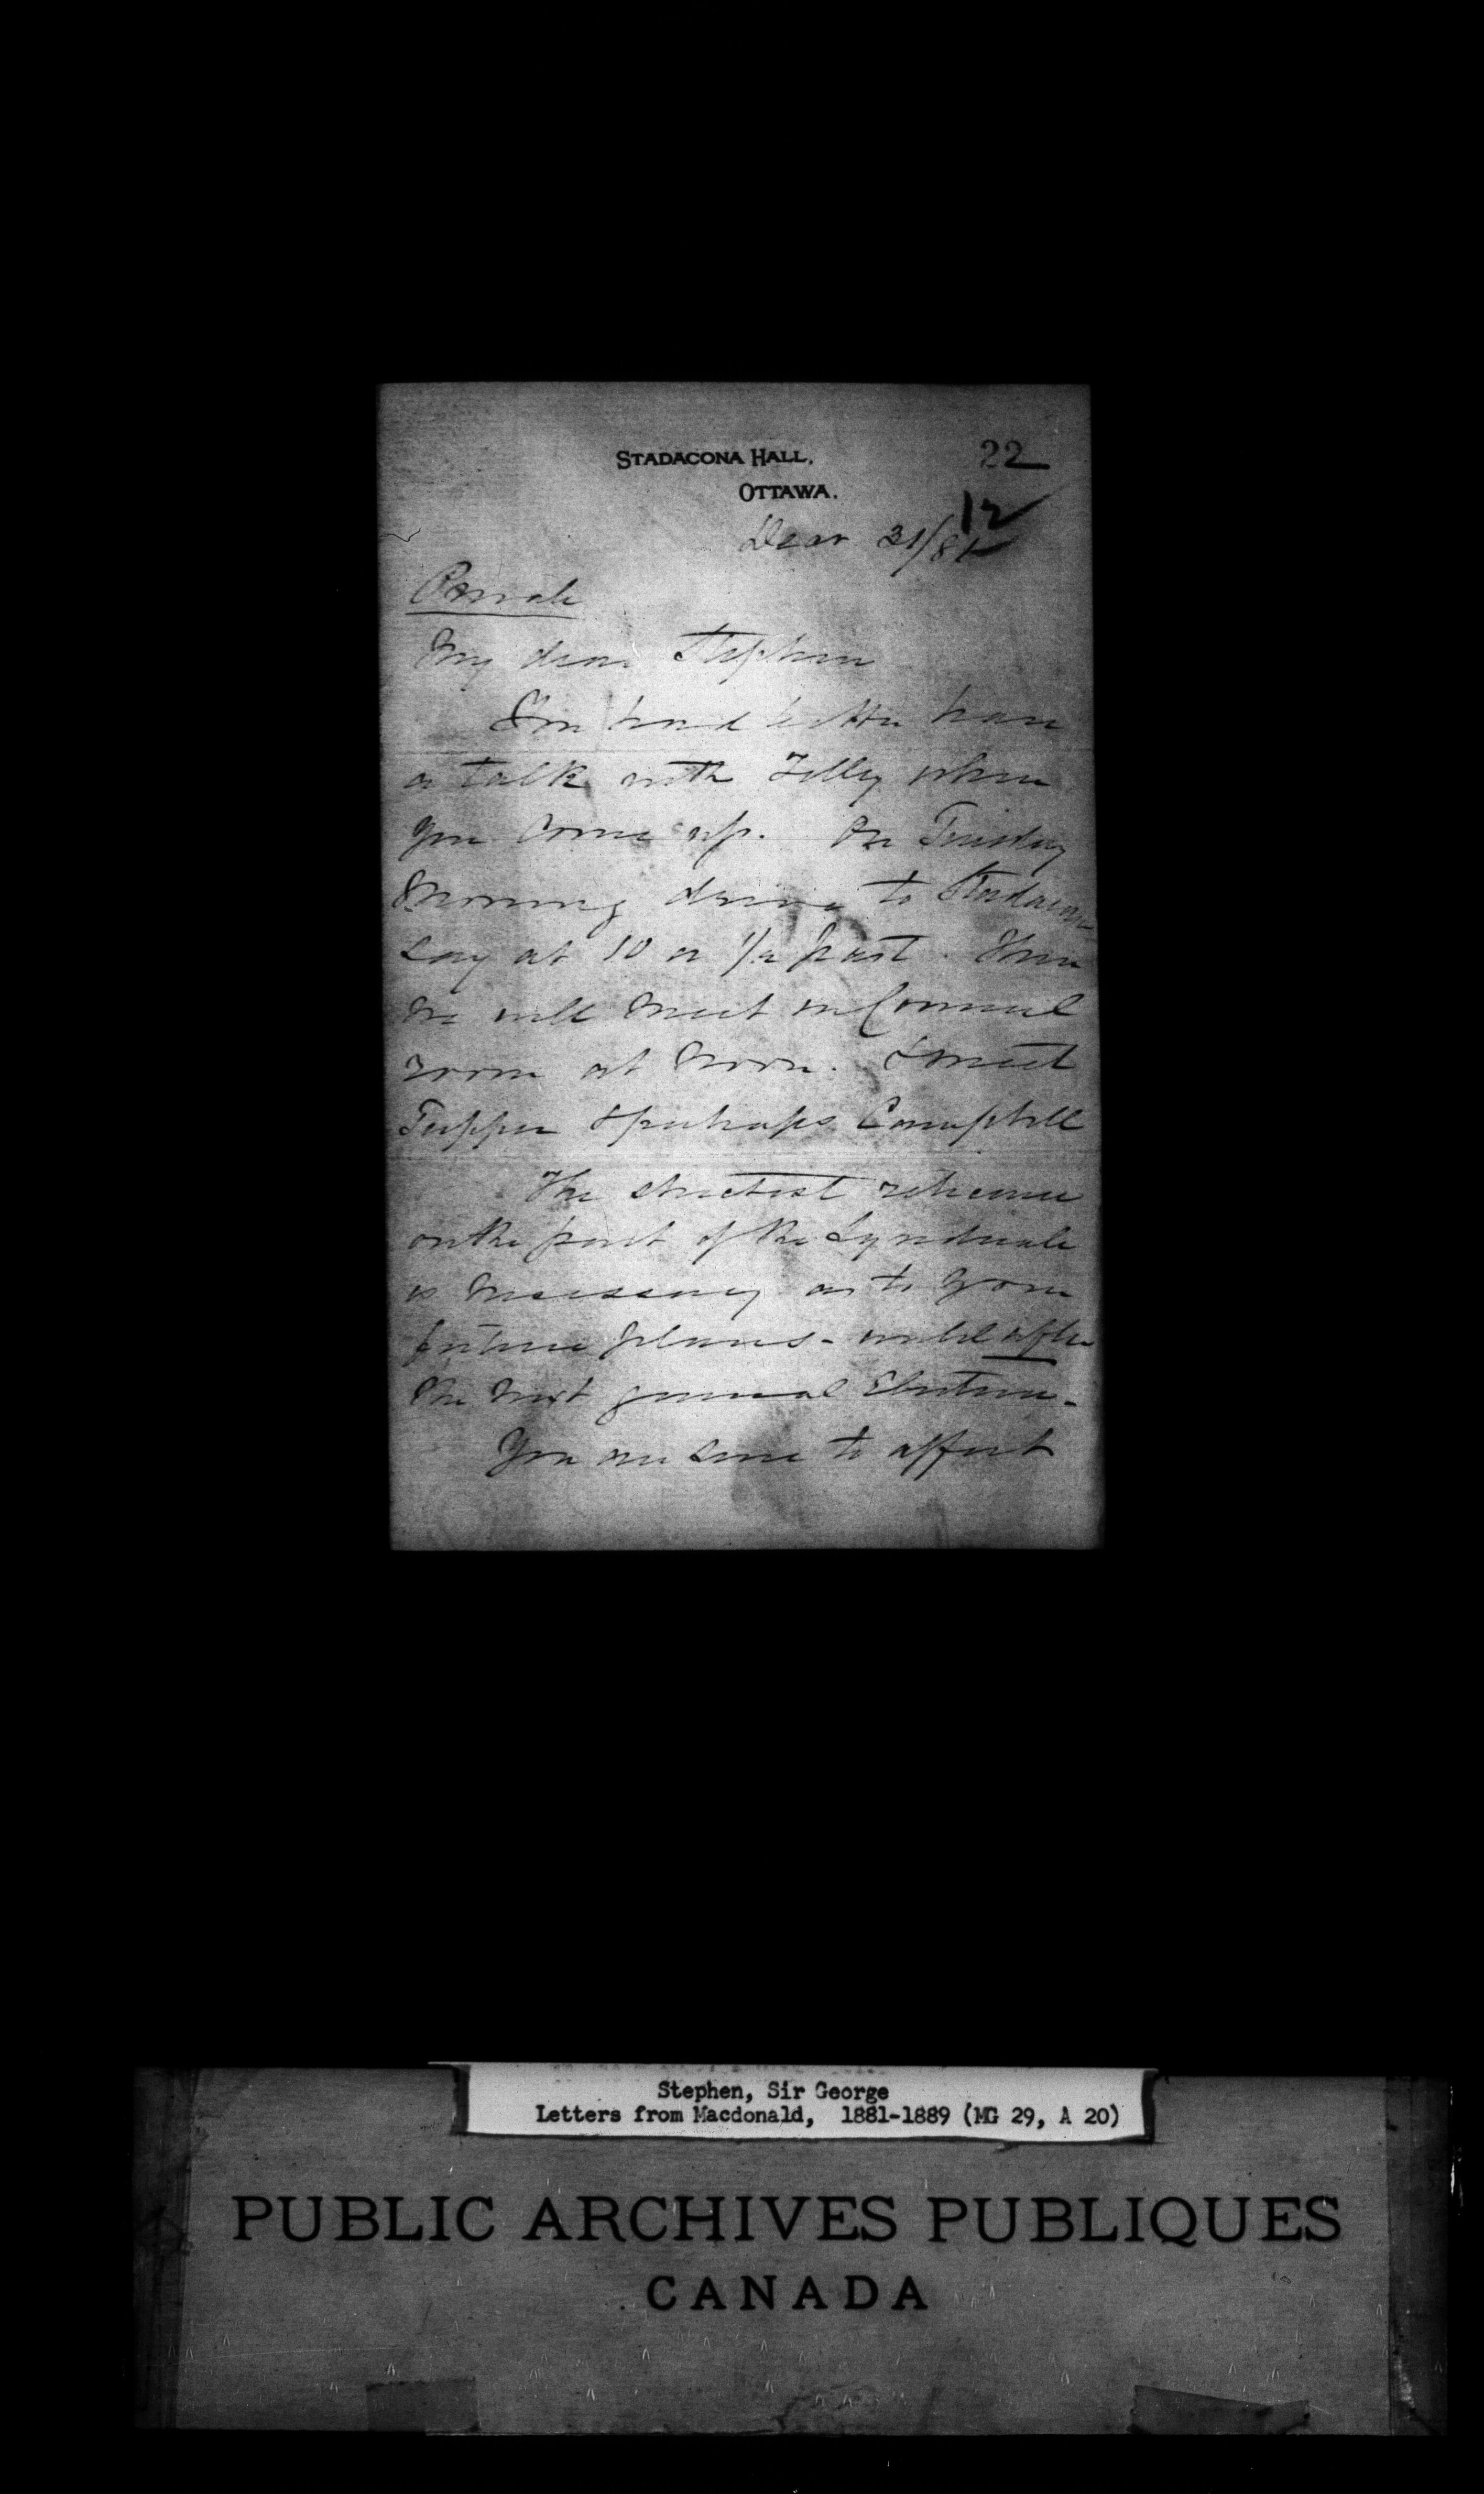 STADACONA HALL.
OTTAWA.
22
12
Decr 31/81
Private
My dear Stephen
You had better have
a talk with Tilley when
you come up. On Tuesday
Morning drive to Stadacona
say at 10 or 1/2 past. Then
we will meet in Council
room at Noon. & meet
Tupper & perhaps Campbell
The strictest reticence
on the part of the Syndicate
is necessary as to your
future plans - until after
the next general Election -
You are sure to affect
Stephen, Sir George
Letters from Macdonald, 1881-1889 (MG 29, A 20)
PUBLIC ARCHIVES PUBLIQUES
CANADA